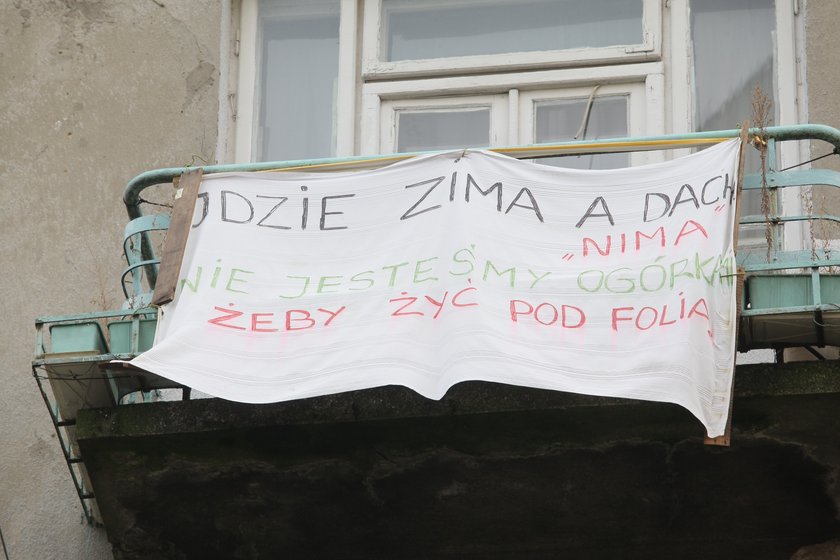 JDZIE ZIMA A DACH
„NIMA”
NIE JESTEŚMY OGÓRKA
ŻEBY ŻYĆ POD FOLIĄ